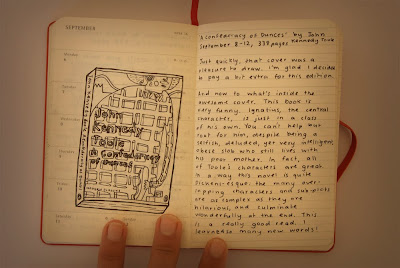 SEPTEMBER
John
Kennedy
Toole
A Confederacy
of Dunces
'A Confederacy of Dunces' by John
Kennedy Toole
September 8-12, 338 pages
Just quickly, that cover was a
pleasure to draw. I'm glad I decided
to pay a bit extra for this edition.
And now to what's inside the
awesome cover. This book is
very funny. Ignatius, the central
character, is just in a class
of his own. You can't help but
root for him, despite being a
selfish, deluded, yet very intelligent,
obese slob who still lives with
his poor mother. In fact, all
of Toole's characters are great.
In a way this novel is quite
the many over-
lapping characters and sub-plots
are as complex as they are
hilarious, and culminate
wonderfully at the end. This
is a really good read. I
many new words!